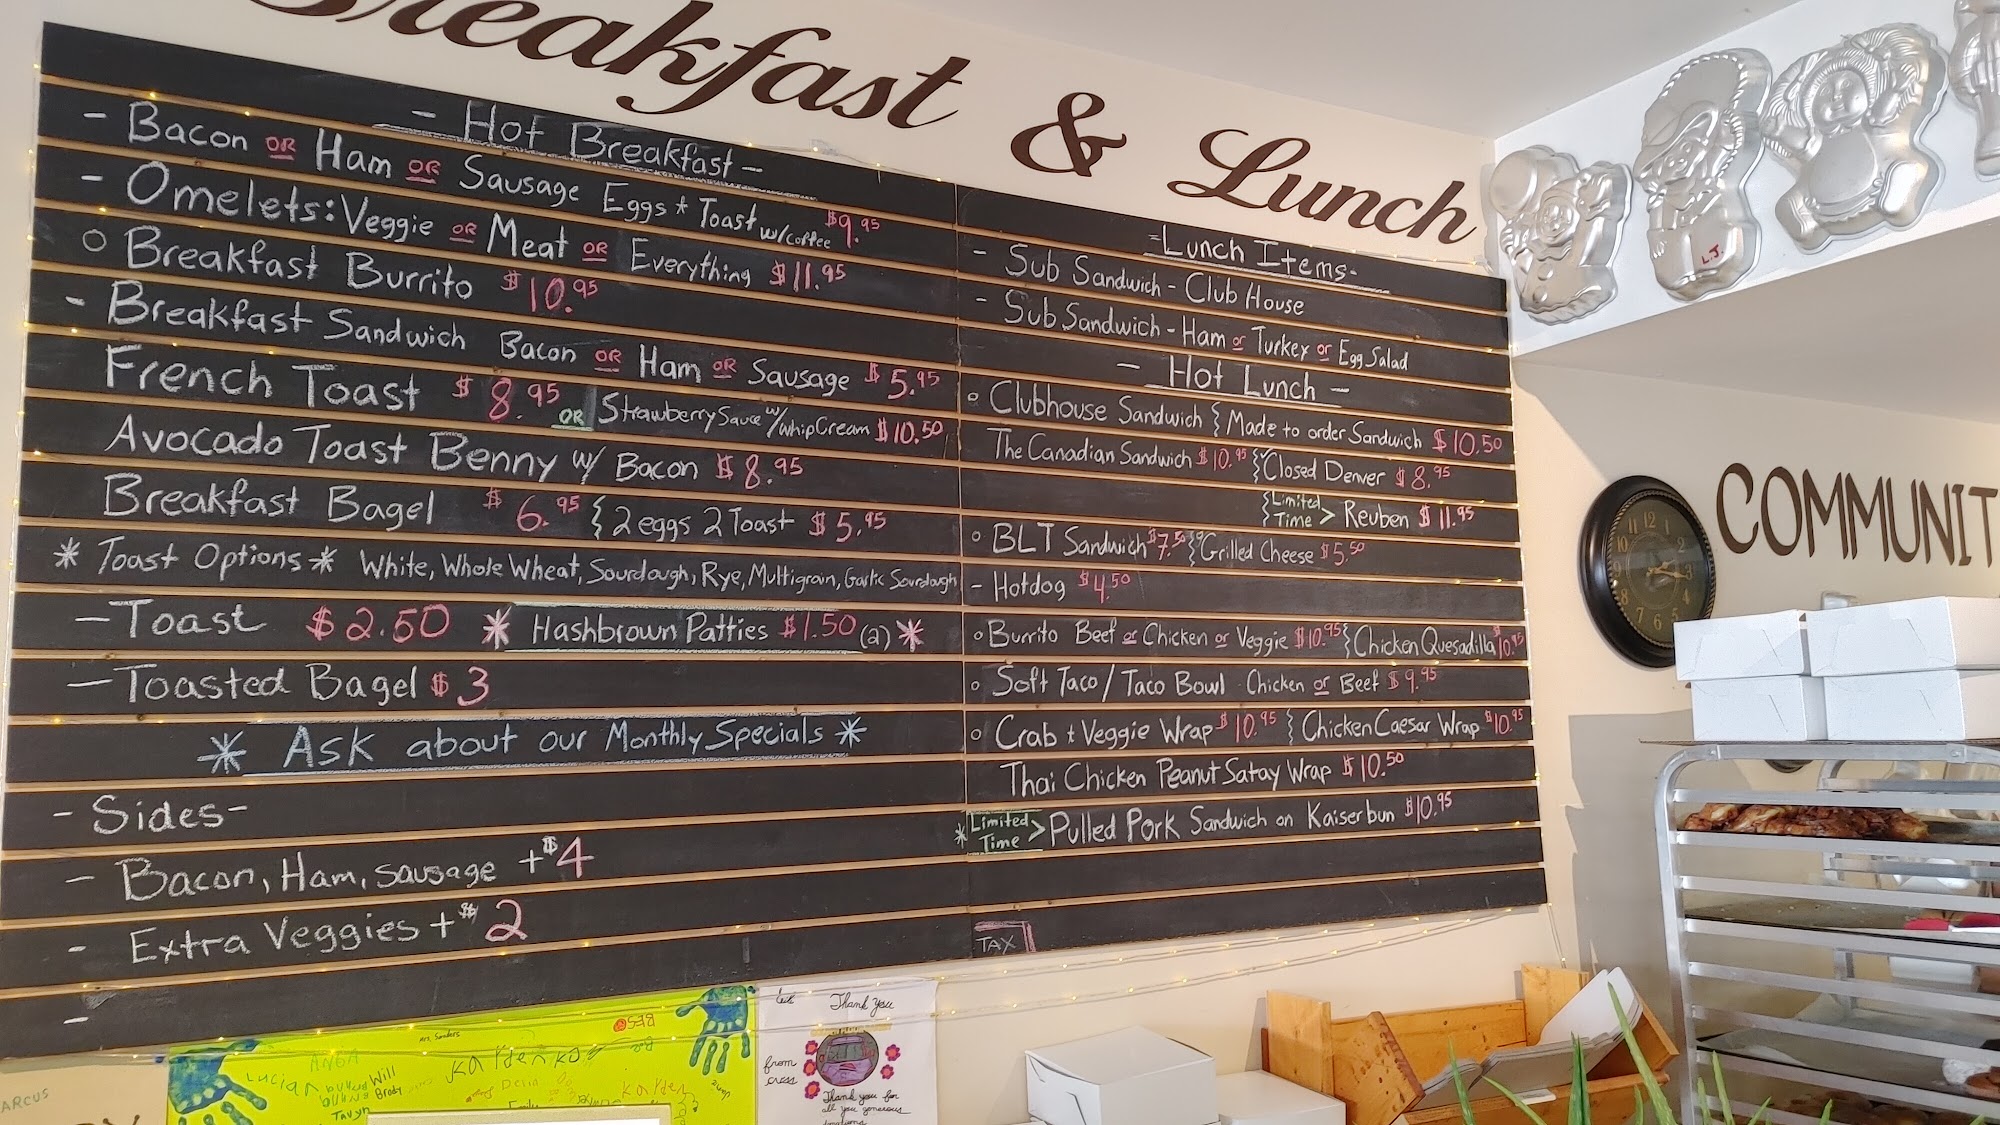 Breakfast & Lunch
- Hot Breakfast -
- Bacon OR Ham OR Sausage Eggs + Toast w/coffee $9.95
- Omelets: Veggie OR Meat OR Everything $11.95
○ Breakfast Burrito $10.95
- Breakfast Sandwich Bacon OR Ham OR Sausage $5.95
French Toast $8.95 OR Strawberry Sauce w/ Whip Cream $10.50
Avocado Toast Benny w/ Bacon $8.95
Breakfast Bagel $6.95 { 2 eggs 2 Toast $5.95
* Toast Options * White, Whole Wheat, Sourdough, Rye, Multigrain, Garlic Sourdough
- Toast $2.50 * Hashbrown Patties $1.50 (2) *
- Toasted Bagel $3
* Ask about our Monthly Specials *
- Sides -
- Bacon, Ham, Sausage +$4
- Extra Veggies +$2
-
- Lunch Items -
- Sub Sandwich - Club House
- Sub Sandwich - Ham or Turkey or Egg Salad
- Hot Lunch -
○ Clubhouse Sandwich { Made to order Sandwich $10.50
The Canadian Sandwich $10.95 { Closed Denver $8.95
{ Limited Time > Reuben $11.95
○ BLT Sandwich $7.50 { Grilled Cheese $5.50
- Hotdog $4.50
○ Burrito Beef or Chicken or Veggie $10.95 { Chicken Quesadilla $10.95
○ Soft Taco / Taco Bowl - Chicken or Beef $9.95
○ Crab + Veggie Wrap $10.95 { Chicken Caesar Wrap $10.95
Thai Chicken Peanut Satay Wrap $10.50
* Limited Time > Pulled Pork Sandwich on Kaiserbun $10.95
TAX
L.J.
COMMUNIT
12
11
10
9
8
7
6
5
4
3
2
1
Mrs. Sanders
ANGA
Lucian
Will
Brody
Tavyn
Kayden
Thank you
from
cross
Thank you for
all you generous
donations
ARCUS